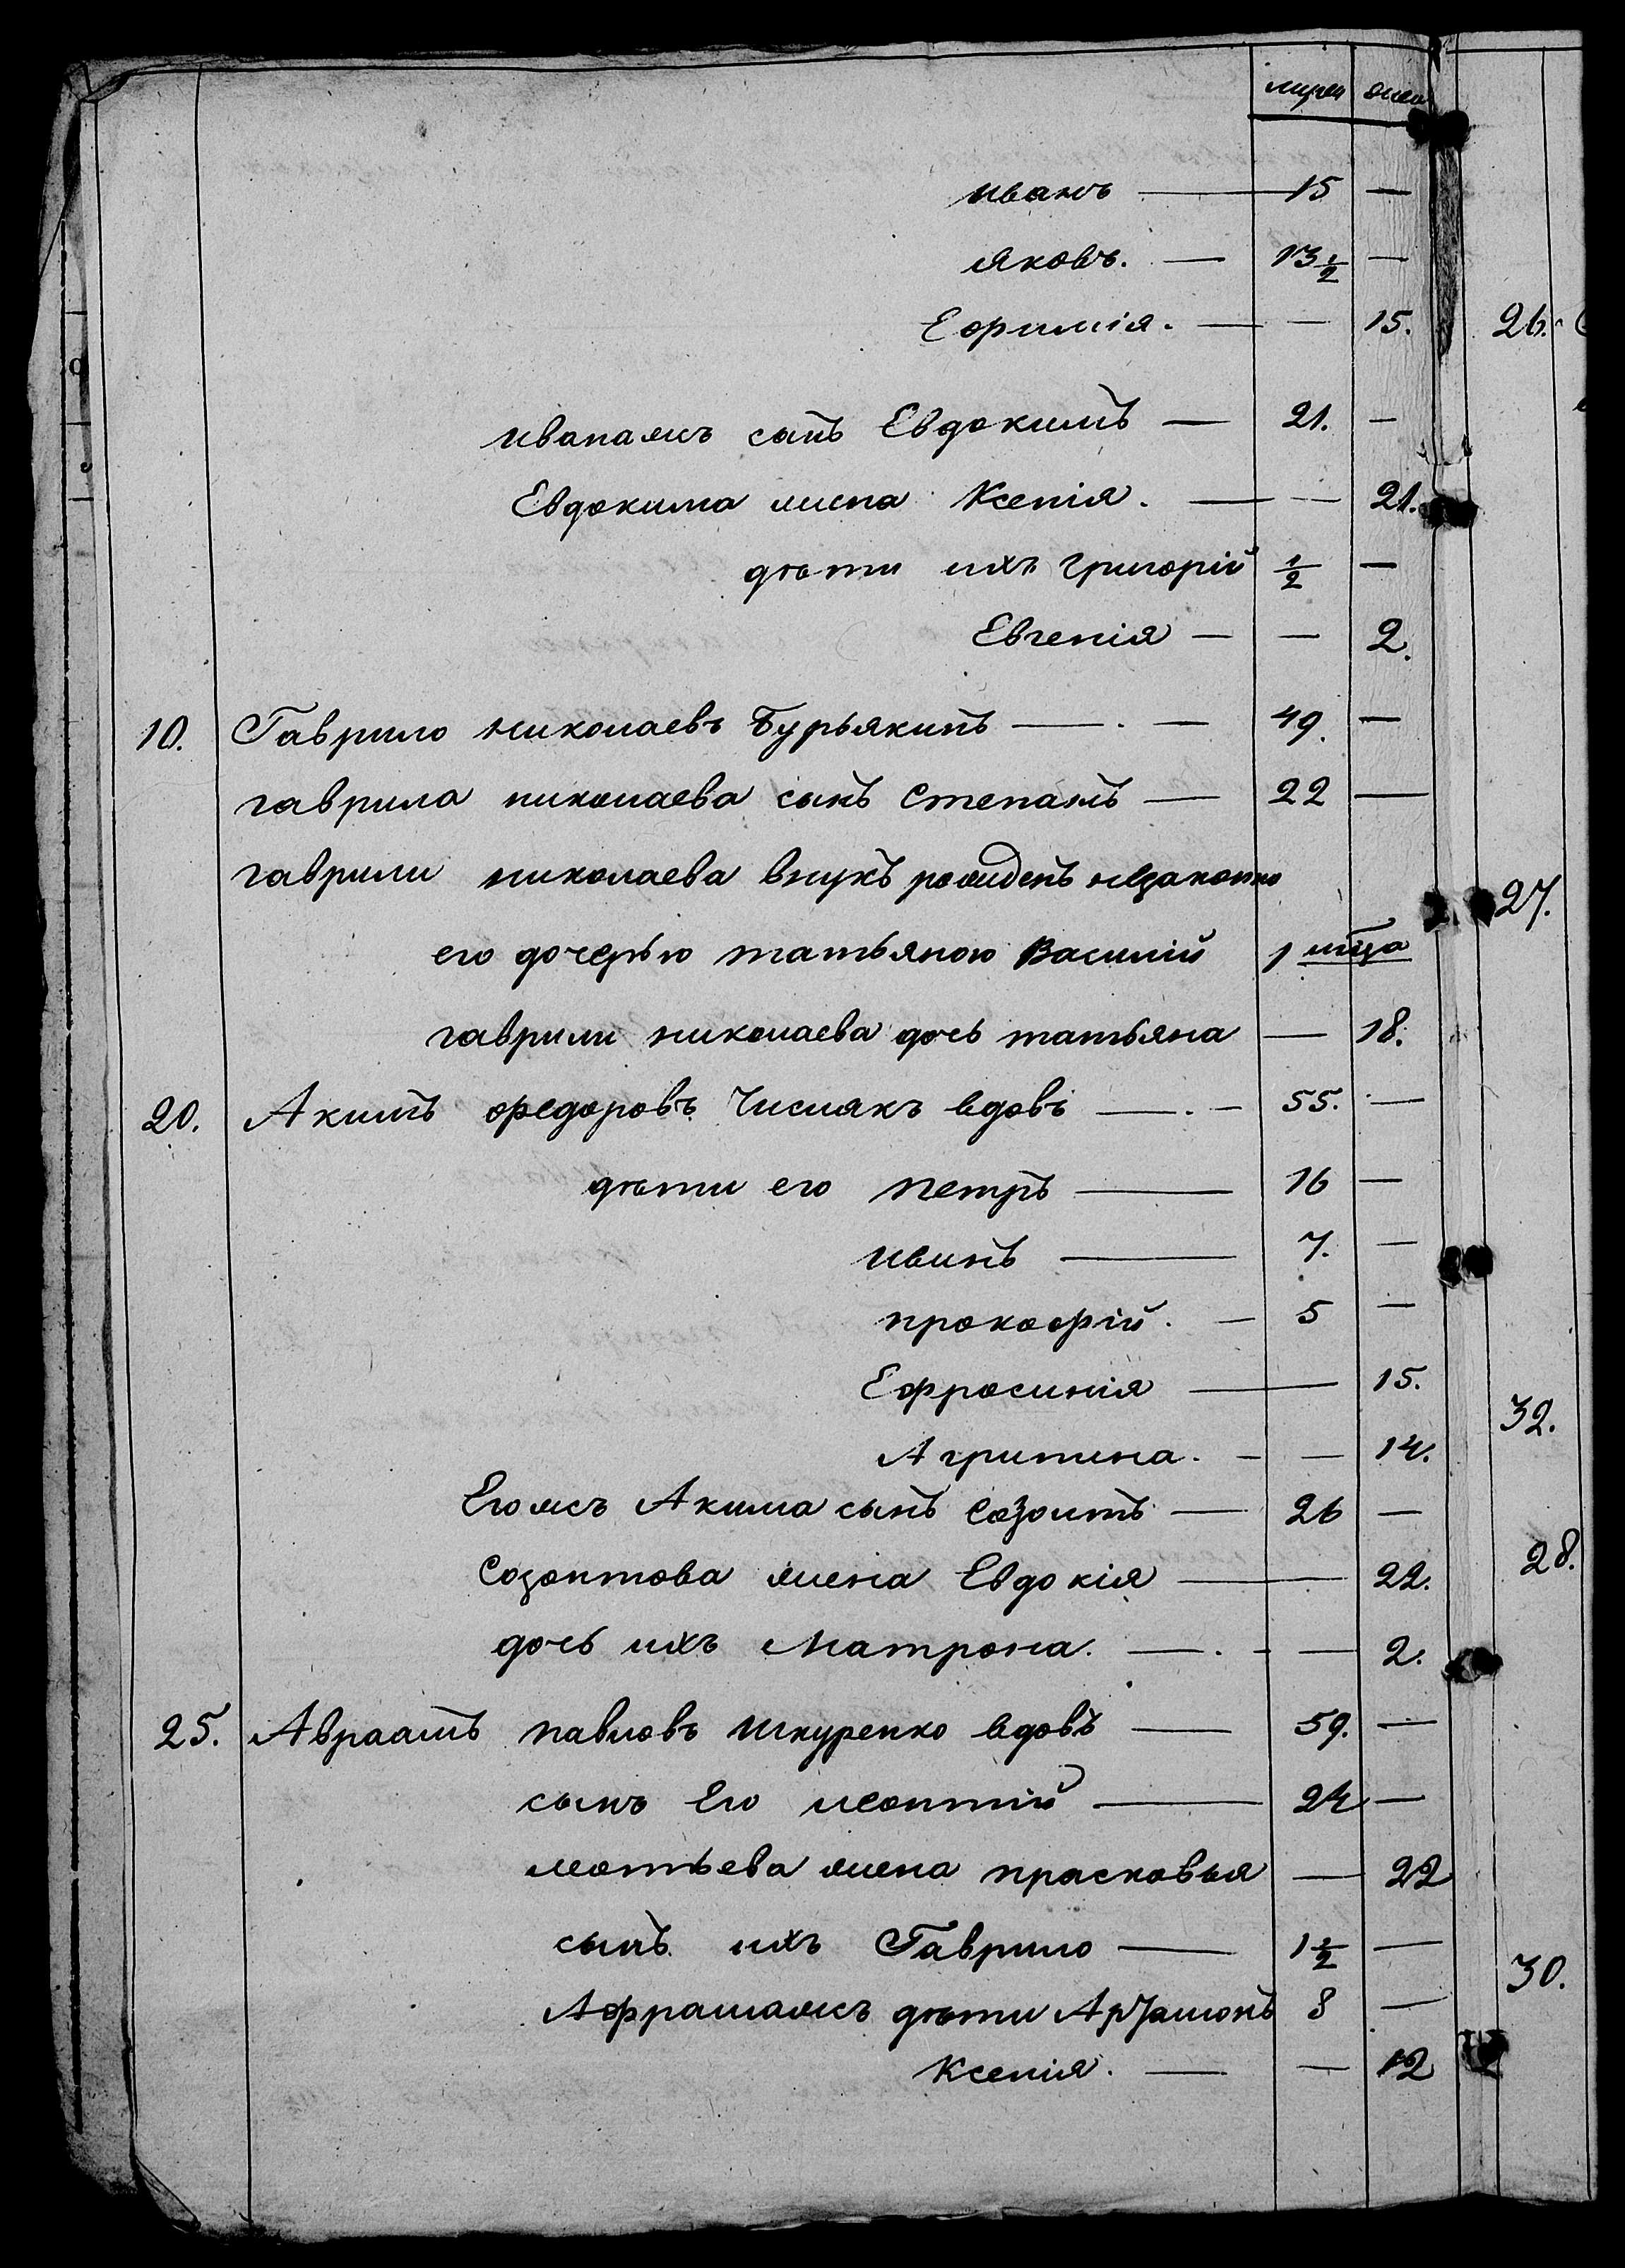 мужеск женск
иванъ — 15 —
яковъ. — 13 1/2 —
Ефимія. — — 15.
ивана жъ сынъ Евдокимъ — 21. —
Евдокима жена Ксенія. — — 21.
дѣти ихъ григорій 1/2 —
Евгенія — — 2.
10. Гаврило николаевъ Бурьякинъ — . — 49. —
гаврила николаева сынъ степанъ — 22 —
гаврили николаева внукъ рожденъ незаконно
его дочерью татьяною Василій 1 мѣца
гаврили николаева дочь татьяна — 18.
20. Акимъ федоровъ Чисмякъ вдовъ — . — 55. —
дѣти его петръ — 16 —
иванъ — 7. —
прокофій. — 5 —
Ефросинія — 15.
Агрипина. — — 14.
Его жъ Акима сынъ Созонтъ — 26 —
Созонтова жена Евдокія — 22.
дочь ихъ Матрона. — . — — 2.
25. Авраамъ павловъ шкуренко вдовъ — 59. —
сынъ Его леонтій — 24 —
леонтьева жена прасковья — 22
сынъ ихъ Гаврило — 1 1/2 —
Афрамажъ дѣти Артамонъ 8 —
Ксенія. — — 12
26.
27.
32.
28.
30.